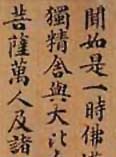 聞如是一時佛
獨精舍與大比
菩薩萬人及諸